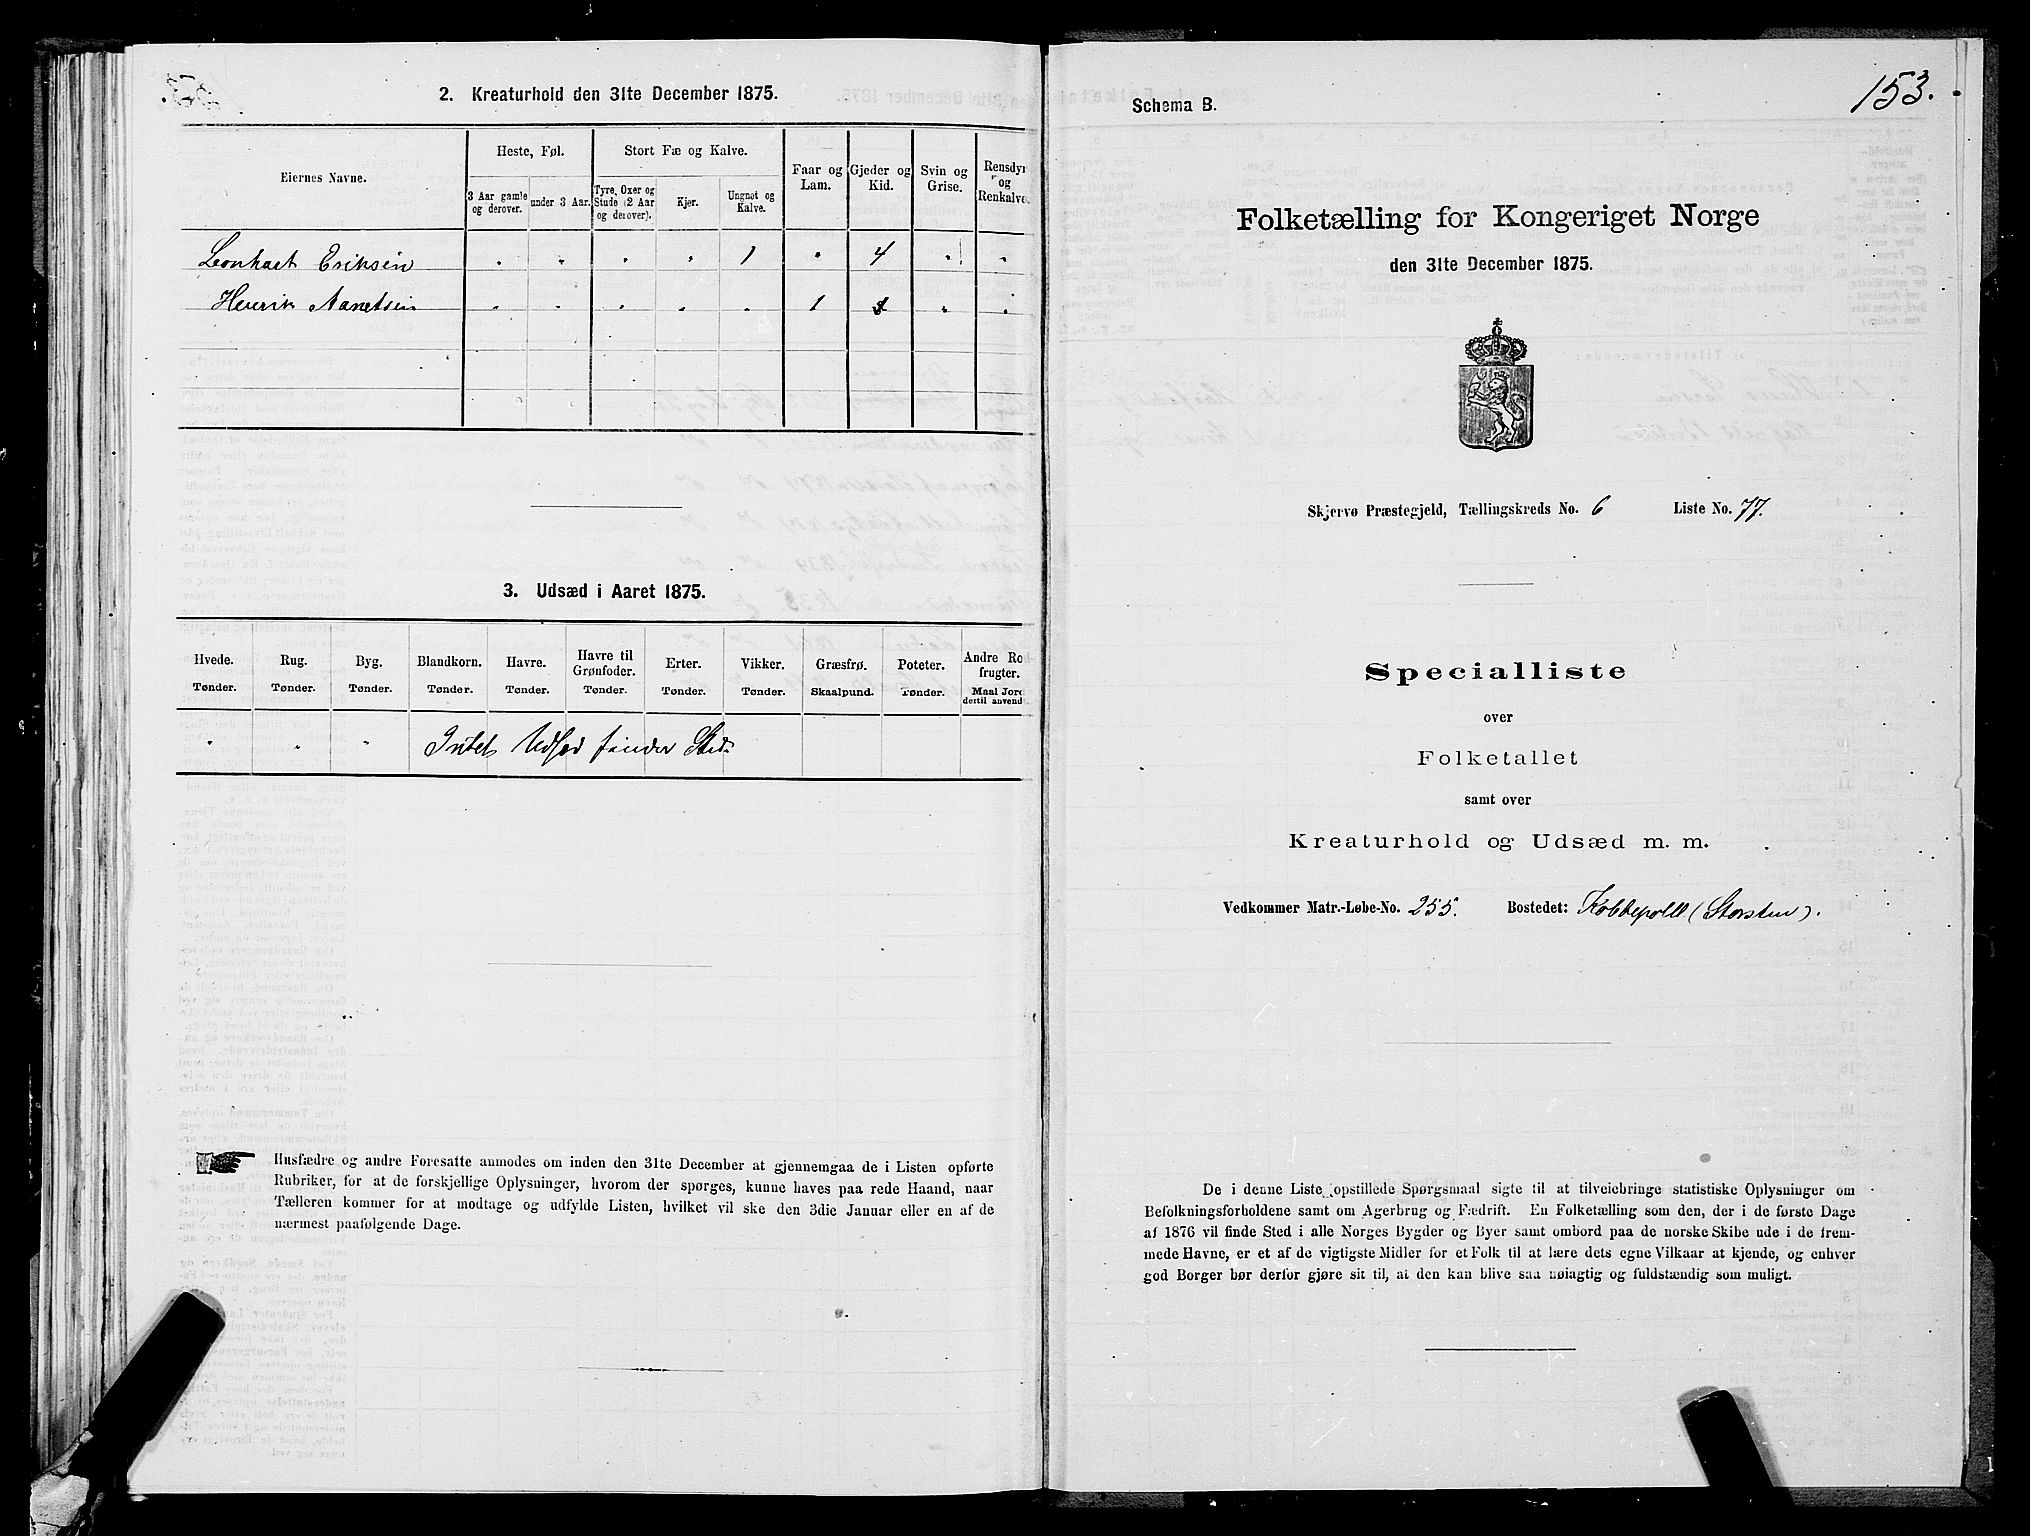 2. Kreaturhold den 31te December 1875.
Eiernes Navne.
Heste, Føl.
Stort Fæ og Kalve.
Faar og Lam.
Gjeder og Kid.
Svin og Grise.
Rensdyr og Renkalve.
3 Aar gamle og derover.
under 3 Aar.
Tyre, Oxer og Stude (2 Aar og derover).
Kjer.
Ungnøt og Kalve.
Leonhart Eriksen " " " " 1 " 4 " "
Henrik " " " " " 1 " "
3. Udsæd i Aaret 1875.
Hvede. Rug. Byg. Blandkorn. Havre. Havre til Grønfoder. Erter. Vikker. Græsfrø. Poteter. Andre Rodfrugter.
Tønder. Tønder. Tønder. Tønder. Tønder. Tønder. Tønder. Tønder. Skaalpund. Tønder. Maal Jord dertil anvendt.
" " " Intet Udsæd finder Sted.
Husfædre og andre Foresatte anmodes om inden den 31te December at gjennemgaa de i Listen opførte
Rubriker, for at de forskjellige Oplysninger, hvorom der spørges, kunne haves paa rede Haand, naar
Tælleren kommer for at modtage og udfylde Listen, hvilket vil ske den 3die Januar eller en af de
nærmest paafølgende Dage.
153.
Schema B.
Folketælling for Kongeriget Norge
den 31te December 1875.
Skjervø Præstegjeld, Tællingskreds No. 6 Liste No. 77.
Specialliste
over
Folketallet
samt over
Kreaturhold og Udsæd m. m.
Vedkommer Matr.-Løbe-No. 255. Bostedet: Kobbepold (Storsten).
De i denne Liste opstillede Spørgsmaal sigte til at tilveiebringe statistiske Oplysninger om
Befolkningsforholdene samt om Agerbrug og Fædrift. En Folketælling som den, der i de første Dage
af 1876 vil finde Sted i alle Norges Bygder og Byer samt ombord paa de norske Skibe ude i de frem-
mede Havne, er et af de vigtigste Midler for et Folk til at lære dets egne Vilkaar at kjende, og enhver
god Borger bør derfor gjøre sit til, at den kan blive saa nøiagtig og fuldstændig som muligt.